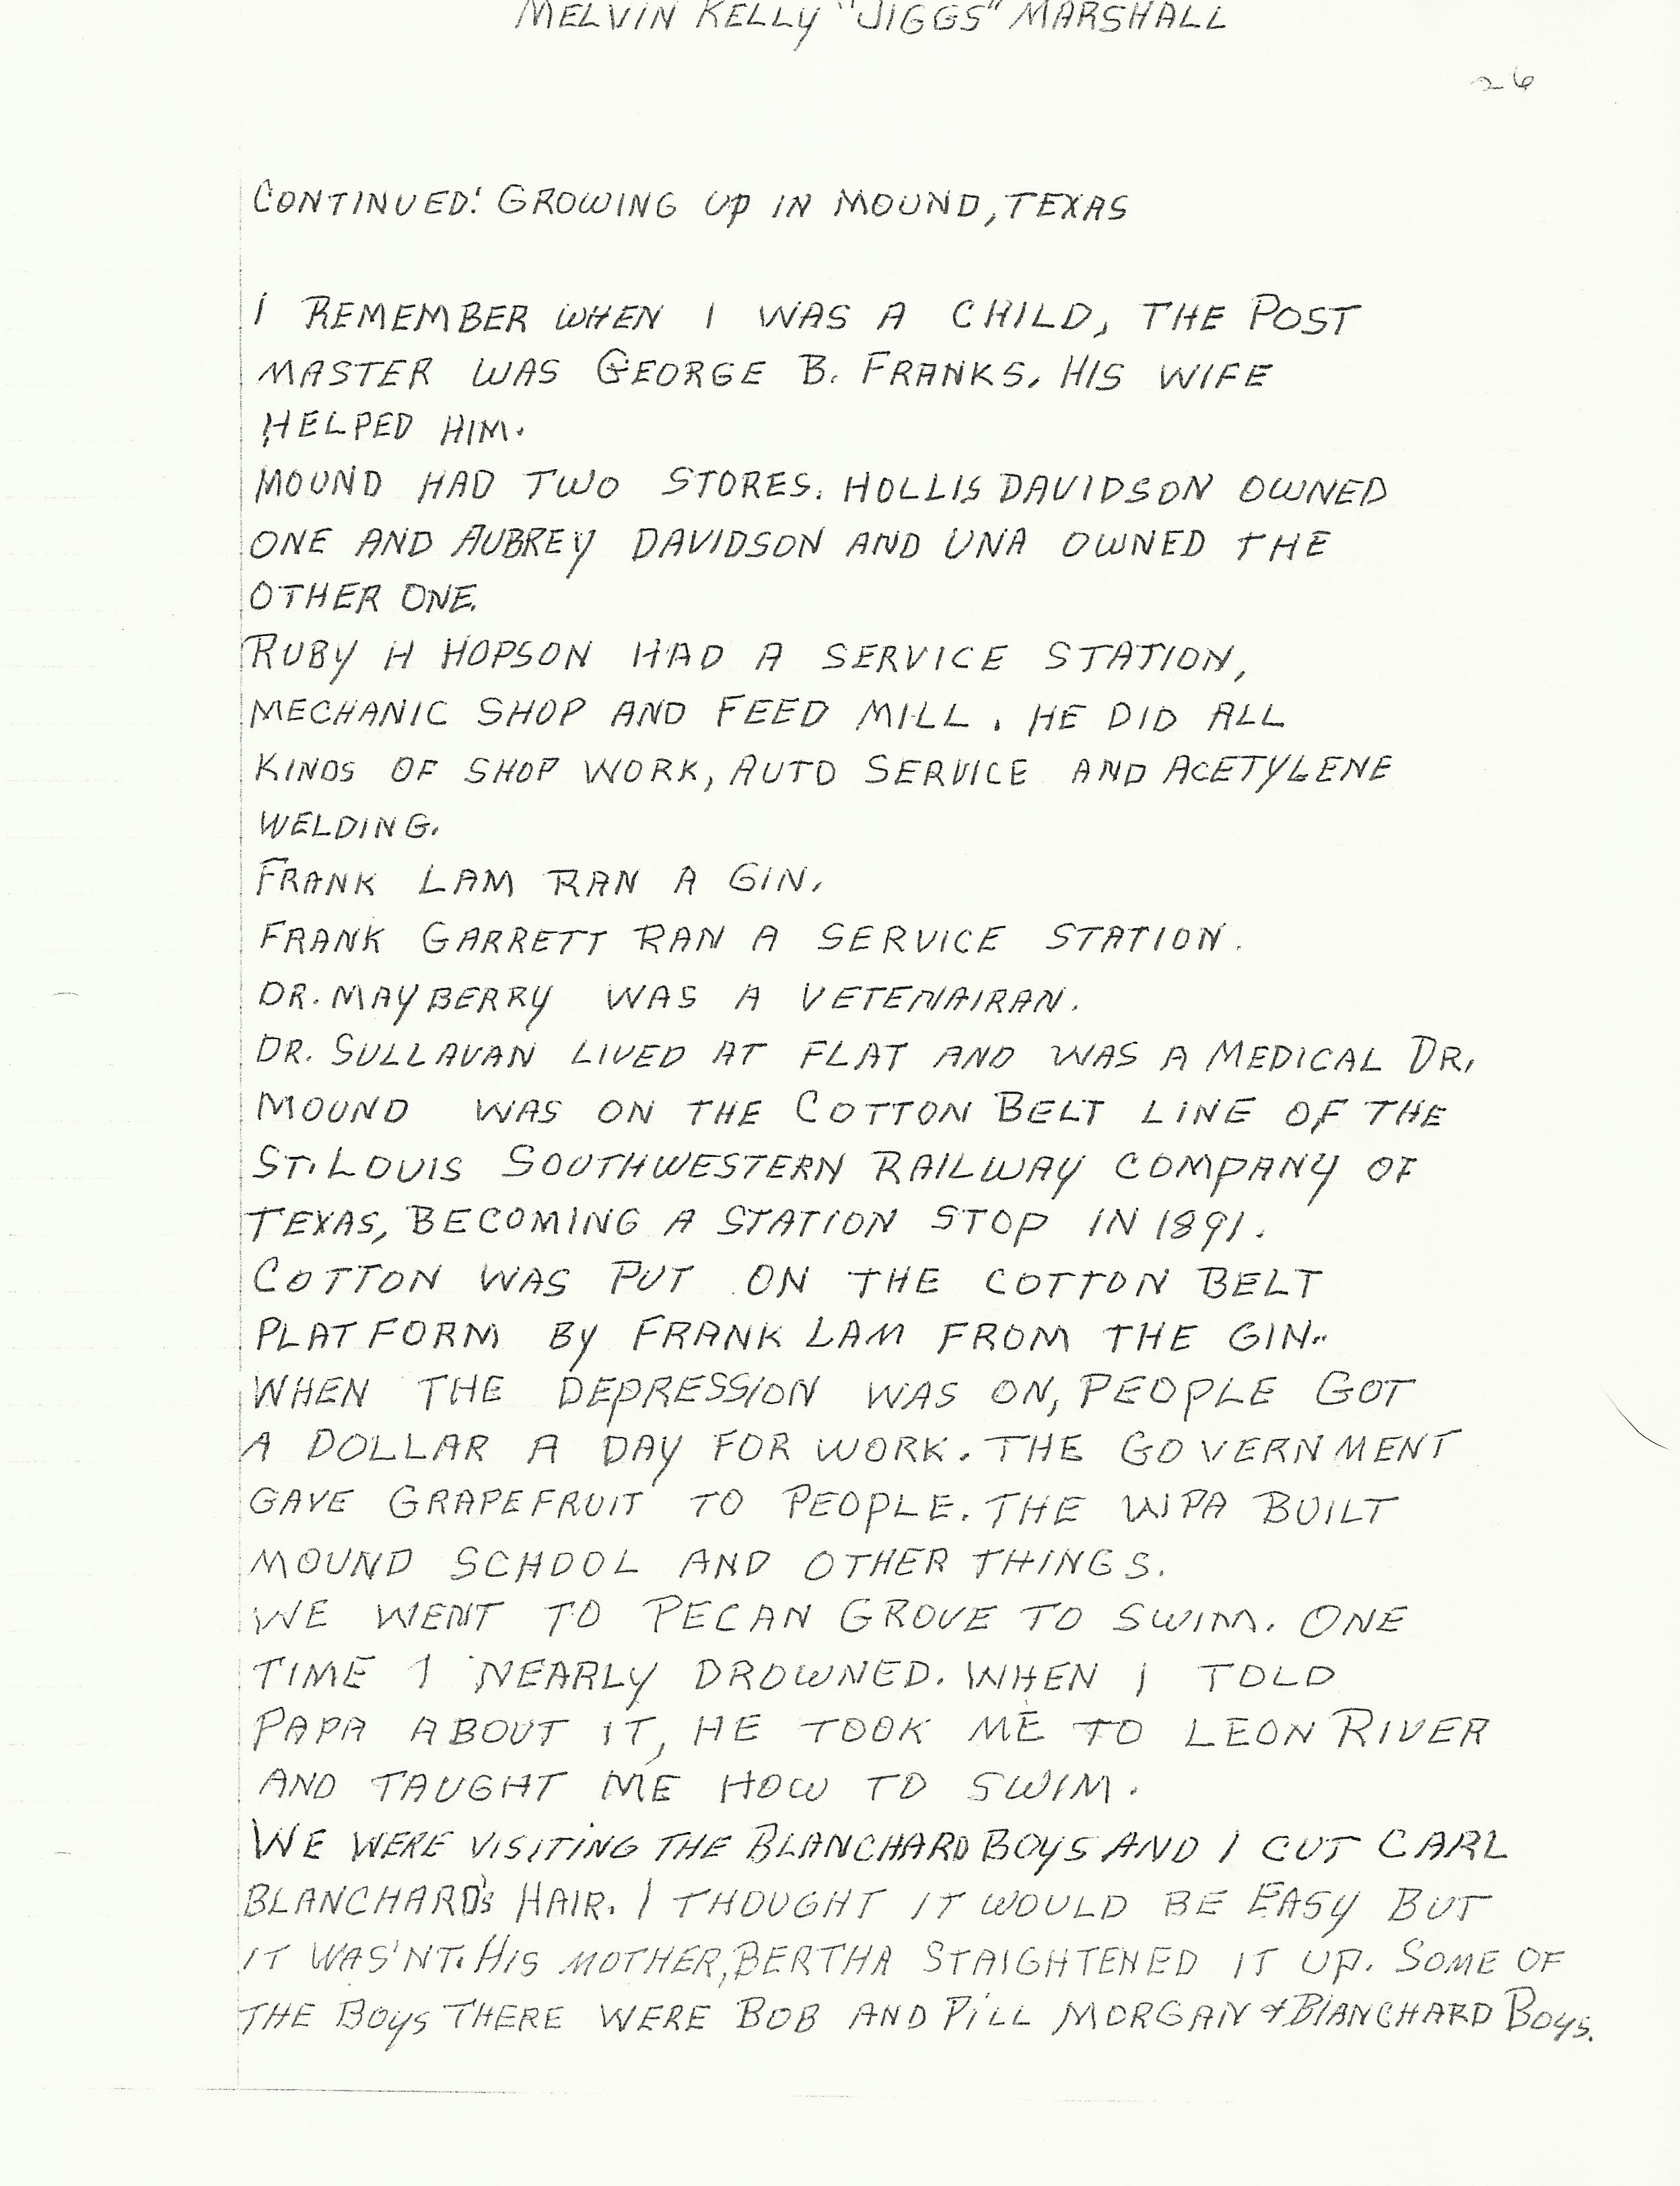 MELVIN KELLY "JIGGS" MARSHALL
26
CONTINUED: GROWING UP IN MOUND, TEXAS
I REMEMBER WHEN I WAS A CHILD, THE POST
MASTER WAS GEORGE B. FRANKS. HIS WIFE
HELPED HIM.
MOUND HAD TWO STORES. HOLLIS DAVIDSON OWNED
ONE AND AUBREY DAVIDSON AND UNA OWNED THE
OTHER ONE.
RUBY H HOPSON HAD A SERVICE STATION,
MECHANIC SHOP AND FEED MILL. HE DID ALL
KINDS OF SHOP WORK, AUTO SERVICE AND ACETYLENE
WELDING.
FRANK LAM RAN A GIN.
FRANK GARRETT RAN A SERVICE STATION.
DR. MAYBERRY WAS A VETENAIRAN.
DR. SULLAVAN LIVED AT FLAT AND WAS A MEDICAL DR.
MOUND WAS ON THE COTTON BELT LINE OF THE
ST. LOUIS SOUTHWESTERN RAILWAY COMPANY OF
TEXAS, BECOMING A STATION STOP IN 1891.
COTTON WAS PUT ON THE COTTON BELT
PLATFORM BY FRANK LAM FROM THE GIN..
WHEN THE DEPRESSION WAS ON, PEOPLE GOT
A DOLLAR A DAY FOR WORK. THE GOVERNMENT
GAVE GRAPEFRUIT TO PEOPLE. THE WPA BUILT
MOUND SCHOOL AND OTHER THINGS.
WE WENT TO PECAN GROVE TO SWIM. ONE
TIME I NEARLY DROWNED. WHEN I TOLD
PAPA ABOUT IT, HE TOOK ME TO LEON RIVER
AND TAUGHT ME HOW TO SWIM.
WE WERE VISITING THE BLANCHARD BOYS AND I CUT CARL
BLANCHARD'S HAIR. I THOUGHT IT WOULD BE EASY BUT
IT WAS'NT. HIS MOTHER, BERTHA STAIGHTENED IT UP. SOME OF
THE BOYS THERE WERE BOB AND PILL MORGAN & BLANCHARD BOYS.